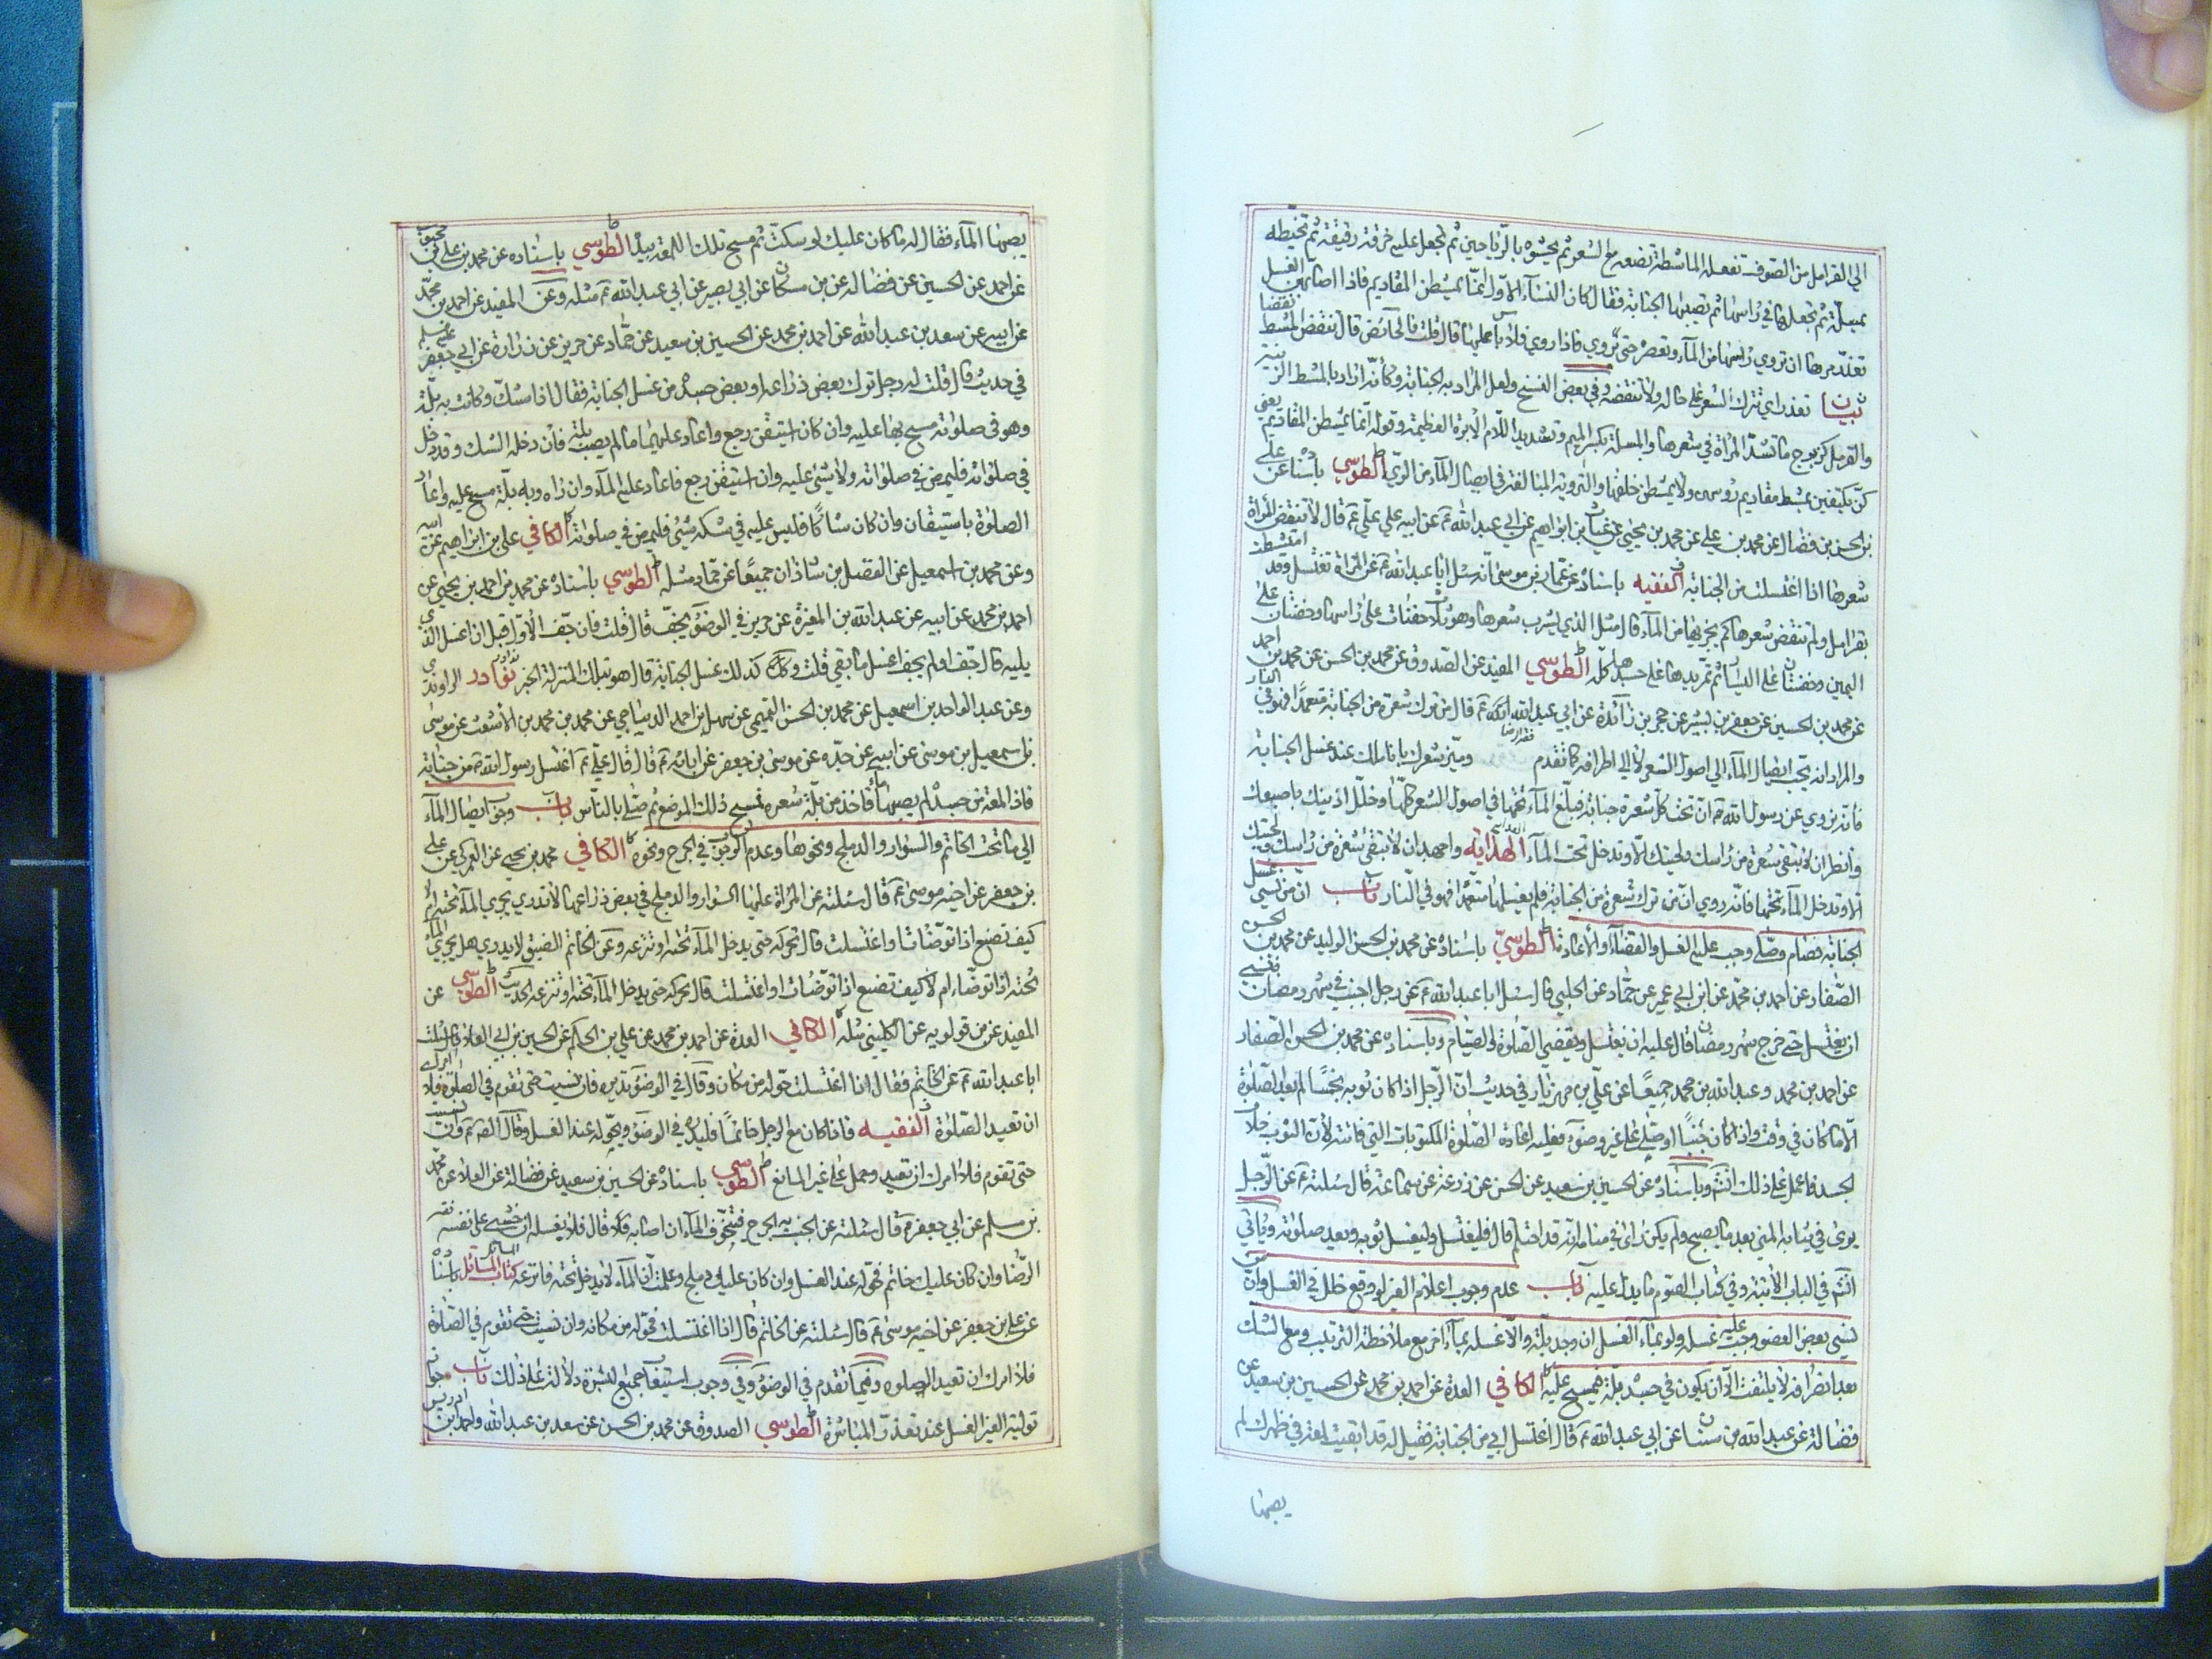 الي القرامل من الصوف تفعله الماشطة تصنعه مع الشعر ثم يحشوه بالرياحين ثم تجعل عليه خرقة رقيقة ثم تخيطه
بمسلة ثم تجعلها في راسها ثم تصيبها الجنابة فقال كان النساء الاول انما يمشطن المقاديم فاذا اصابهن الغسل
تغدر مرها ان تروي راسها من الماء وتعصره حتى تروي فاذا روي فلا باس عليها قال قلت فالحائض قال تنقض المشط نقضا
بيان تغدر اي تترك الشعر على حاله ولا تنقضه وفي بعض النسخ ولعل المراد به الجنابة وكانه اراد بالمشط الزينة
والقرمل كزبرج ما تشد المراة في شعرها والمسلة بكسر الميم وتشديد اللام الابرة العظيمة وقوله انما يمشطن المقاديم يعني
كن يكتفين بمشط مقاديم رؤسهن ولا يمشطن خلفها والتروية المبالغة في ايصال الماء من الري الطوسي باسناده عن علي
بن الحسن بن فضال عن محمد بن علي عن محمد بن يحيى عن غياث بن ابراهيم عن ابي عبد الله ع عن ابيه عن علي ع قال لا تنقض المراة
شعرها اذا اغتسلت من الجنابة الفقيه باسناده عن عمار بن موسى انه سئل ابا عبد الله ع عن المراة تغتسل وقد امتشطت
بقرامل ولم تنقض شعرها كم يجزيها من الماء قال مثل الذي يشرب شعرها وهو ثلاث حفنات على راسها وحفنتان على
اليمين وحفنتان على اليسار ثم تمر يدها على جسدها كله الطوسي المفيد عن الصدوق عن محمد بن الحسن عن محمد بن احمد
عن محمد بن الحسين عن جعفر بن بشير عن حجر بن زائدة عن ابي عبد الله ع قال من ترك شعرة من الجنابة متعمدا فهو في النار
والمراد انه يجب ايصال الماء الي اصول الشعر لا الي اطرافه كما تقدم فقه الرضا وميز شعرك باناملك عند غسل الجنابة
فانه نروي عن رسول الله ص ان تحت كل شعرة جنابة فبلغ الماء تحتها في اصول الشعر كلها وخلل اذنيك باصبعك
وانظر ان لا تبقى شعرة من راسك ولحيتك الا وتدخل تحتها الماء الهداية واجهد ان لا تبقى شعرة من راسك ولحيتك
الا وتدخل الماء تحتها فانه روي ان من ترك شعرة من الجنابة فلم يغسلها متعمدا فهو في النار باب ان من نسي غسل
الجنابة فصام وصلى وجب عليه الغسل والقضاء والاعادة الطوسي باسناده عن محمد بن الحسن الوليد عن محمد بن الحسن
الصفار عن احمد بن محمد عن ابن ابي عمير عن حماد عن الحلبي قال سئل ابا عبد الله ع عن رجل اجنب في شهر رمضان فنسي
ان يغتسل حتى خرج شهر رمضان قال عليه ان يغتسل ويقضي الصلوة والصيام وباسناده عن محمد بن الحسن الصفار
عن احمد بن محمد وعبد الله بن محمد جميعا عن علي بن مهزيار في حديث ان الرجل اذا كان ثوبه نجسا لم يعد الصلوة
الا ما كان في وقت واذا كان جنبا او صلى على غير وضوء فعليه اعادة الصلوة المكتوبات التي فاتته لان الثوب خلاف
الجسد فاعمل على ذلك انشم وباسناده عن الحسين بن سعيد عن الحسن عن زرعة عن سماعة قال سئلته ع عن الرجل
يرى في ثيابه المني بعد ما يصبح ولم يكن راى في منامه انه قد احتلم قال فليغتسل وليغسل ثوبه ويعيد صلوته وياتي
انشم في الباب الاتية وفي كتاب الصوم ما يدل عليه باب عدم وجوب اعلام الغير لو وقع خلل في الغسل وان من
نسي بعض العضو وجب عليه غسله ولو بماء الغسل ان وجد بلة والا غسله بماء اخر مع ملاحظة الترتيب ومع الشك
بعد انصرافه لا يلتفت الا ان يكون في جسده بلة فيمسح عليه الكافي العدة عن احمد بن محمد عن الحسين بن سعيد عن
فضالة عن عبد الله بن سنان عن ابي عبد الله ع قال اغتسل ابي من الجنابة فقيل له قد ابقيت لمعة في ظهرك لم
يصبها
يصبها الماء فقال له ما كان عليك لو سكت ثم مسح تلك اللمعة بيده الطوسي باسناده عن محمد بن علي بن محبوب
عن احمد عن الحسين عن فضالة عن بن مسكان عن ابي بصير عن ابي عبد الله ع مثله وعن المفيد عن احمد بن محمد
عن ابيه عن سعد بن عبد الله عن احمد بن محمد عن الحسين بن سعيد عن حماد عن حريز عن زرارة عن ابي جعفر
في حديث قال قلت له رجل ترك بعض ذراعه او بعض جسده من غسل الجنابة فقال اذا شك وكانت به بلة
وهو في صلوته مسح بها عليه وان كان استيقن رجع واعاد عليهما ما لم يصب بلة فان دخله الشك وقد دخل
في صلوته فليمض في صلوته ولا شيئ عليه وان استيقن رجع فاعاد عليه الماء وان راه وبه بلة مسح عليه واعاد
الصلوة باستيقان وان كان شاكا فليس عليه في شكه شيئ فليمض في صلوته الكافي علي بن ابراهيم عن ابيه
وعن محمد بن اسمعيل عن الفضل بن شاذان جميعا عن حماد مثله الطوسي باسناده عن محمد بن احمد بن يحيى عن
احمد بن محمد عن ابيه عن عبد الله بن المغيرة عن حريز في الوضوء يجف قال قلت فان جف الاول قبل ان اغسل الذي
يليه قال جف او لم يجف اغسل ما بقي قلت وكك كذلك غسل الجنابة قال هو بتلك المنزلة الخبر نوادر الراوندي
وعن عبد الواحد بن اسمعيل عن محمد بن الحسن التميمي عن سهل بن احمد الديباجي عن محمد بن محمد بن الاشعث عن موسى
بن اسمعيل بن موسى عن ابيه عن جده عن موسى بن جعفر عن ابائه ع قال قال علي ع اغتسل رسول الله ص من جنابة
فاذا لمعة من جسده لم يصبها ماء فاخذ من بلة شعره فمسح ذلك الموضع ثم صلى بالناس باب وجوب ايصال الماء
الي ما تحت الخاتم والسوار والدملج ونحوها وعدم الوجوب في الجرح ونحوه الكافي محمد بن يحيى عن العمركي عن علي
بن جعفر عن اخيه موسى ع قال سئلته عن المراة عليها السوار والدملج في بعض ذراعها لا تدري يجري الماء تحته ام لا
كيف تصنع اذا توضات او اغتسلت قال تحركه حتى يدخل الماء تحته او تنزعه وعن الخاتم الضيق لا يدري هل يجري الماء
تحته اذا توضاء ام لا كيف تصنع اذا توضات او اغتسلت قال يحركه حتى يدخل الماء تحته او تنزعه الحديث الطوسي عن
المفيد عن بن قولويه عن الكليني مثله الكافي العدة عن احمد بن محمد عن علي بن الحكم عن الحسين بن ابي العلا قال سئلت
ابا عبد الله ع عن الخاتم فقال اذا اغتسلت حوله من مكان وقال في الوضوء تديره فان نسيت حتى تقوم في الصلوة فلا امرك
ان تعيد الصلوة الفقيه فاذا كان مع الرجل خاتما فليدره في الوضوء ويحوله عند الغسل وقال الصم ع وان نسيت
حتى تقوم فلا امرك ان تعيد وحمل على غير المانع الطوسي باسناده عن الحسين بن سعيد عن فضالة عن العلا عن محمد
بن مسلم عن ابي جعفر ع قال سئلته عن الجنب به الجرح فيتخوف الماء ان اصابه قال قال فلا يغسله ان خشي على نفسه فقه
الرضا وان كان عليك خاتم فحوله عند الغسل وان كان عليك دملج وعلمت ان الماء لا يدخل تحته فانزعه كتاب المسائل باسناده
عن علي بن جعفر عن اخيه موسى ع قال سئلته عن الخاتم قال اذا اغتسلت فحوله من مكانه وان نسيت حتى تقوم في الصلوة
فلا امرك ان تعيد الصلوة وفيما تقدم في الوضوء وفي وجوب استيعاب جميع البشرة دلالة على ذلك باب جواز
تولية الغير الغسل عند تعذر المباشرة الطوسي الصدوق عن محمد بن الحسن عن سعد بن عبد الله واحمد بن ادريس